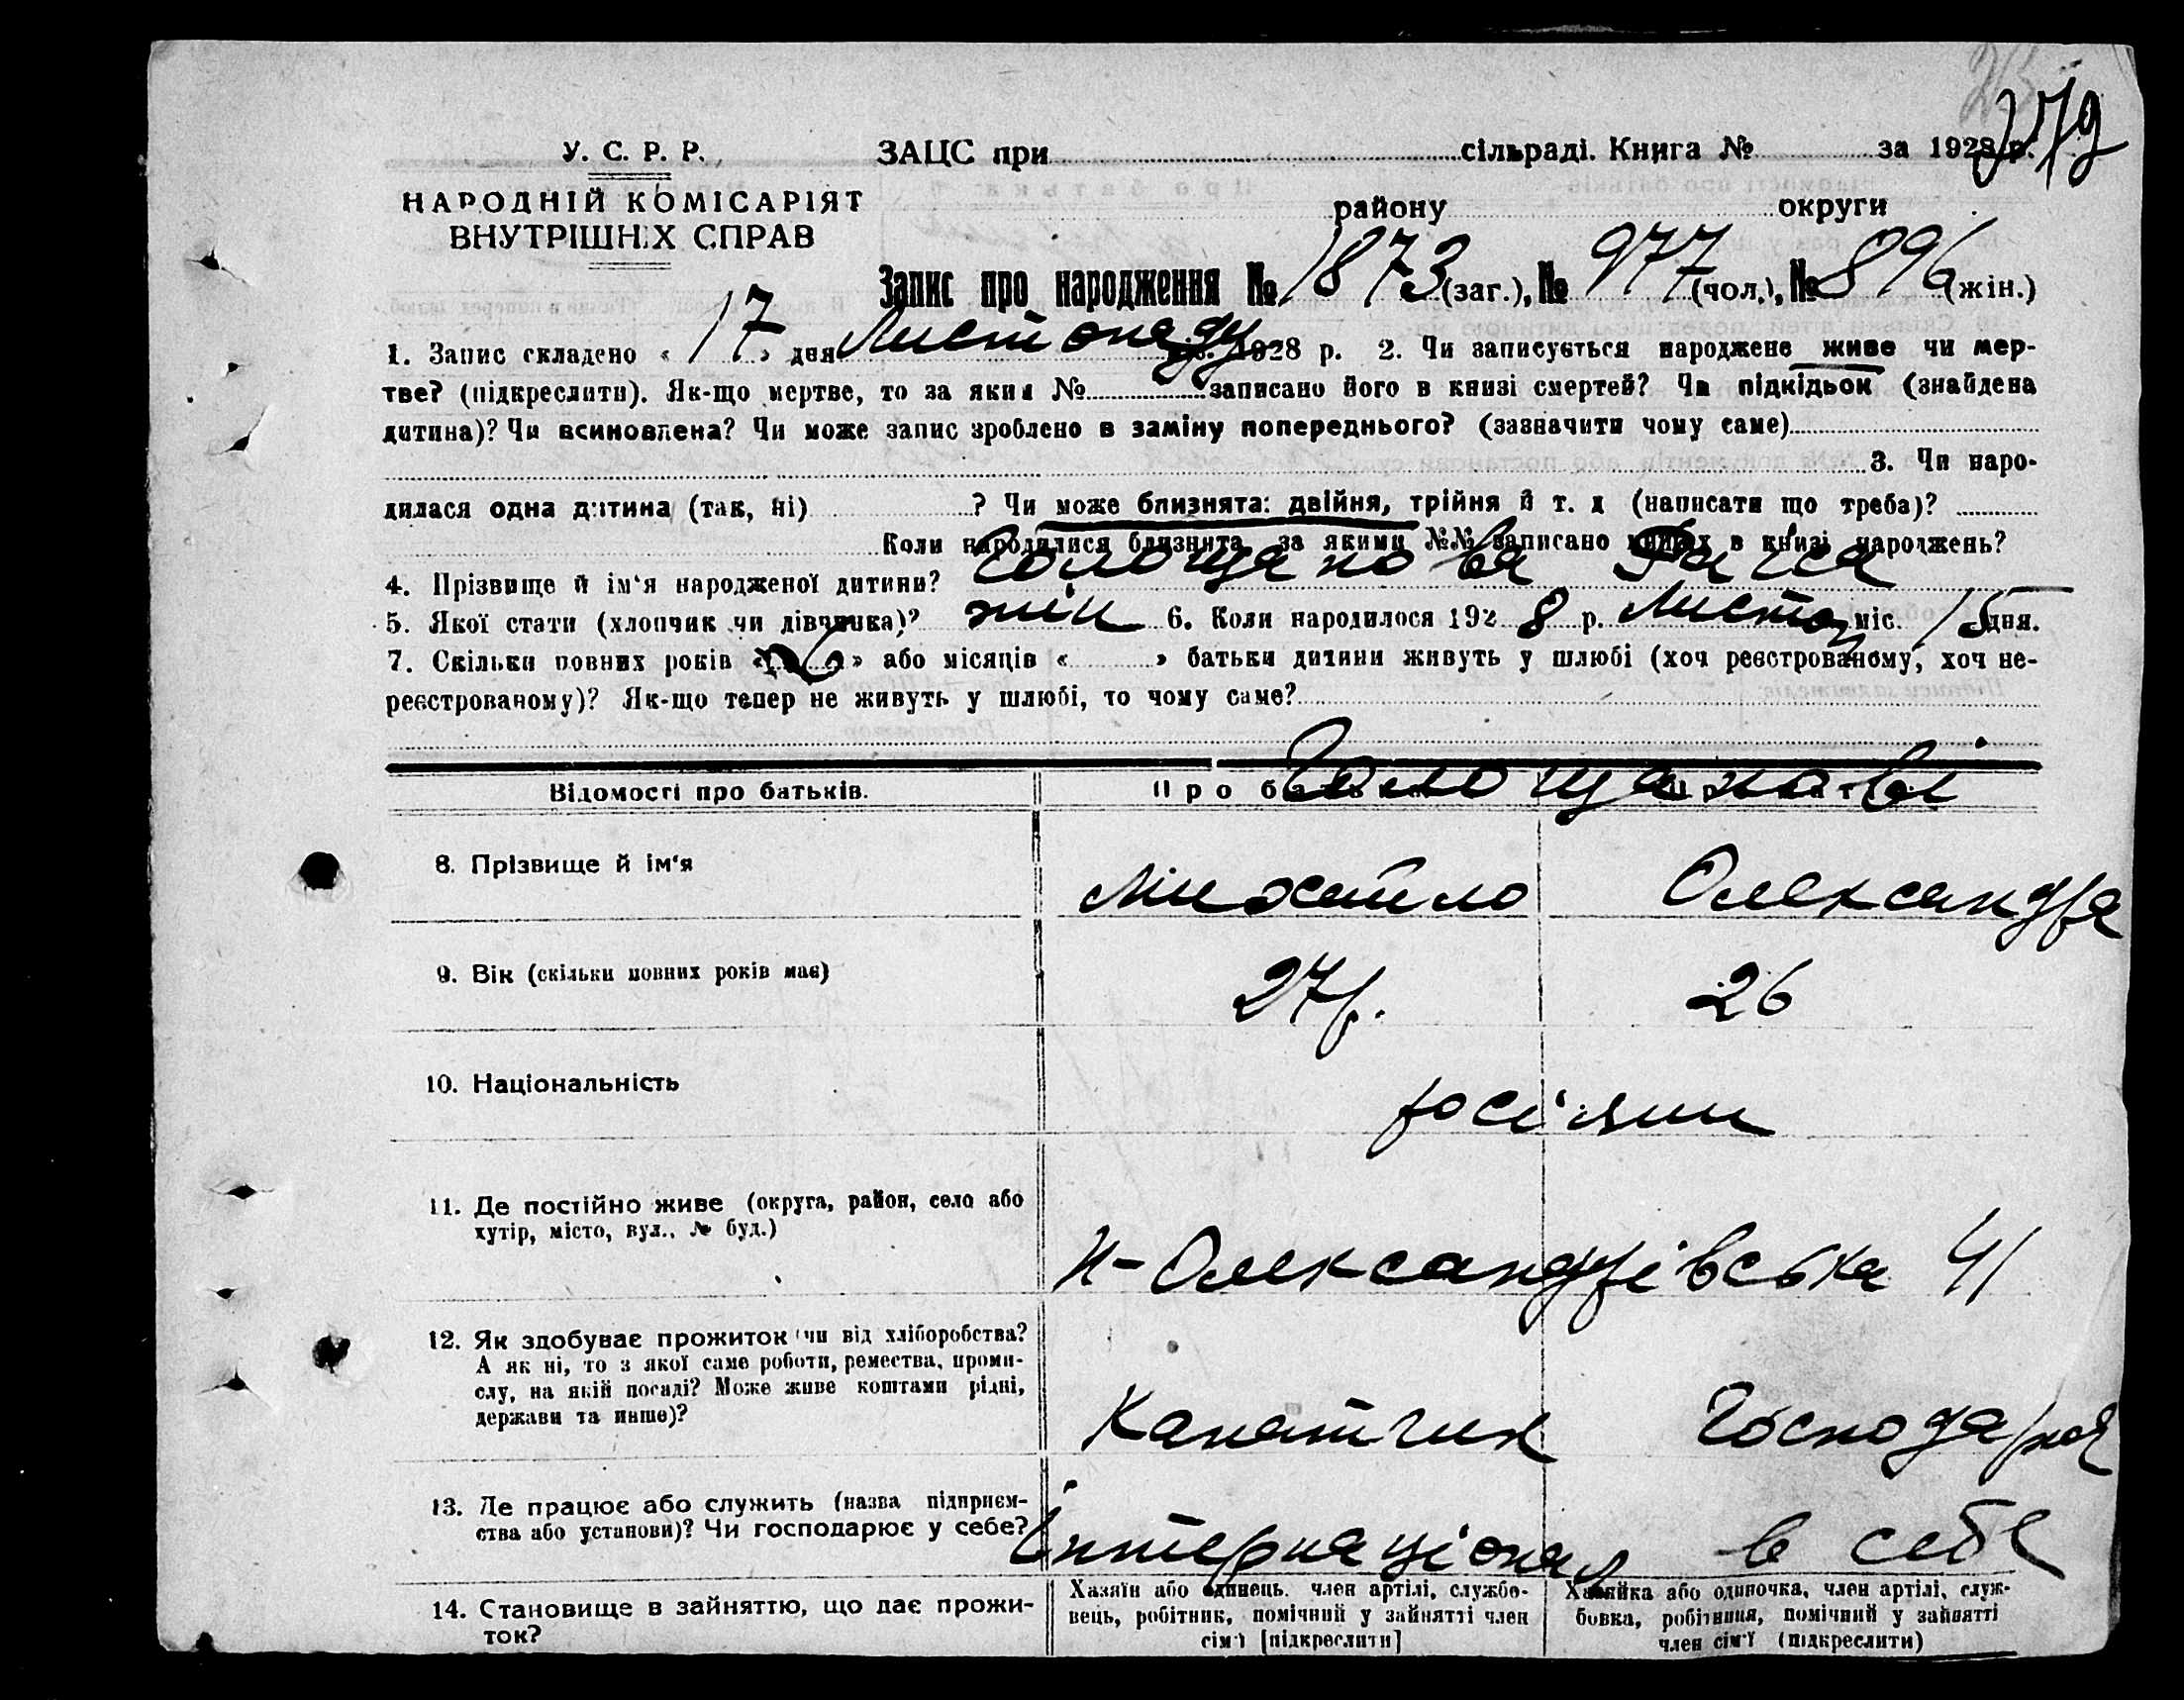 279
У. С. Р. Р. ЗАЦС при сільраді. Книга № за 1928 р.
НАРОДНІЙ КОМІСАРІЯТ району округи
ВНУТРІШНІХ СПРАВ
Запис про народження № 1873 (заг.), № 977 (чол.), № 896 (жін.)
1. Запис складено « 17 » дня Листопаду 1928 р. 2. Чи записується народжене живе чи мер-
тве? (підкреслити). Як-що мертве, то за яким № записано його в книзі смертей? Чи підкідьок (знайдена
дитина)? Чи всиновлена? Чи може запис зроблено в заміну попереднього? (зазначити чому саме)
3. Чи наро-
дилася одна дитина (так, ні) ? Чи може близнята: двійня, трійня й т. д (написати що треба)?
Коли народилися близнята за якими №№ записано в книзі народжень?
4. Прізвище й ім'я народженої дитини? Голощанова Раїса
5. Якої стати (хлопчик чи дівчинка)? жін 6. Коли народилося 1928 р. Листоп міс. 15 дня.
7. Скільки повних років « 6 » або місяців « » батьки дитини живуть у шлюбі (хоч реєстрованому, хоч не-
реєстрованому)? Як-що тепер не живуть у шлюбі, то чому саме?
Відомості про батьків. Про Голощанові
8. Прізвище й ім'я Михайло Олександра
9. Вік (скільки повних років має) 27 р. 26
10. Національність росіяни
11. Де постійно живе (округа, район, село або
хутір, місто, вул., № буд.) Н-Олександрівська 41
12. Як здобуває прожиток чи від хліборобства?
А як ні, то з якої саме роботи, ремества, проми-
слу, на якій посаді? Може живе коштами рідні,
держави та инше)? Канатчик Господарка
13. Де працює або служить (назва підприєм-
ства або установи)? Чи господарює у себе? Інтернаціонал в себе
14. Становище в зайняттю, що дає прожи-
ток?
Хазяїн або одинець. член артілі, службо-
вець, робітник, помічний у зайнятті член
сім'ї [підкреслити]
Хазяйка або одиночка, член артілі, служ-
бовка, робітниця, помічний у зайнятті
член сім'ї (підкреслити)